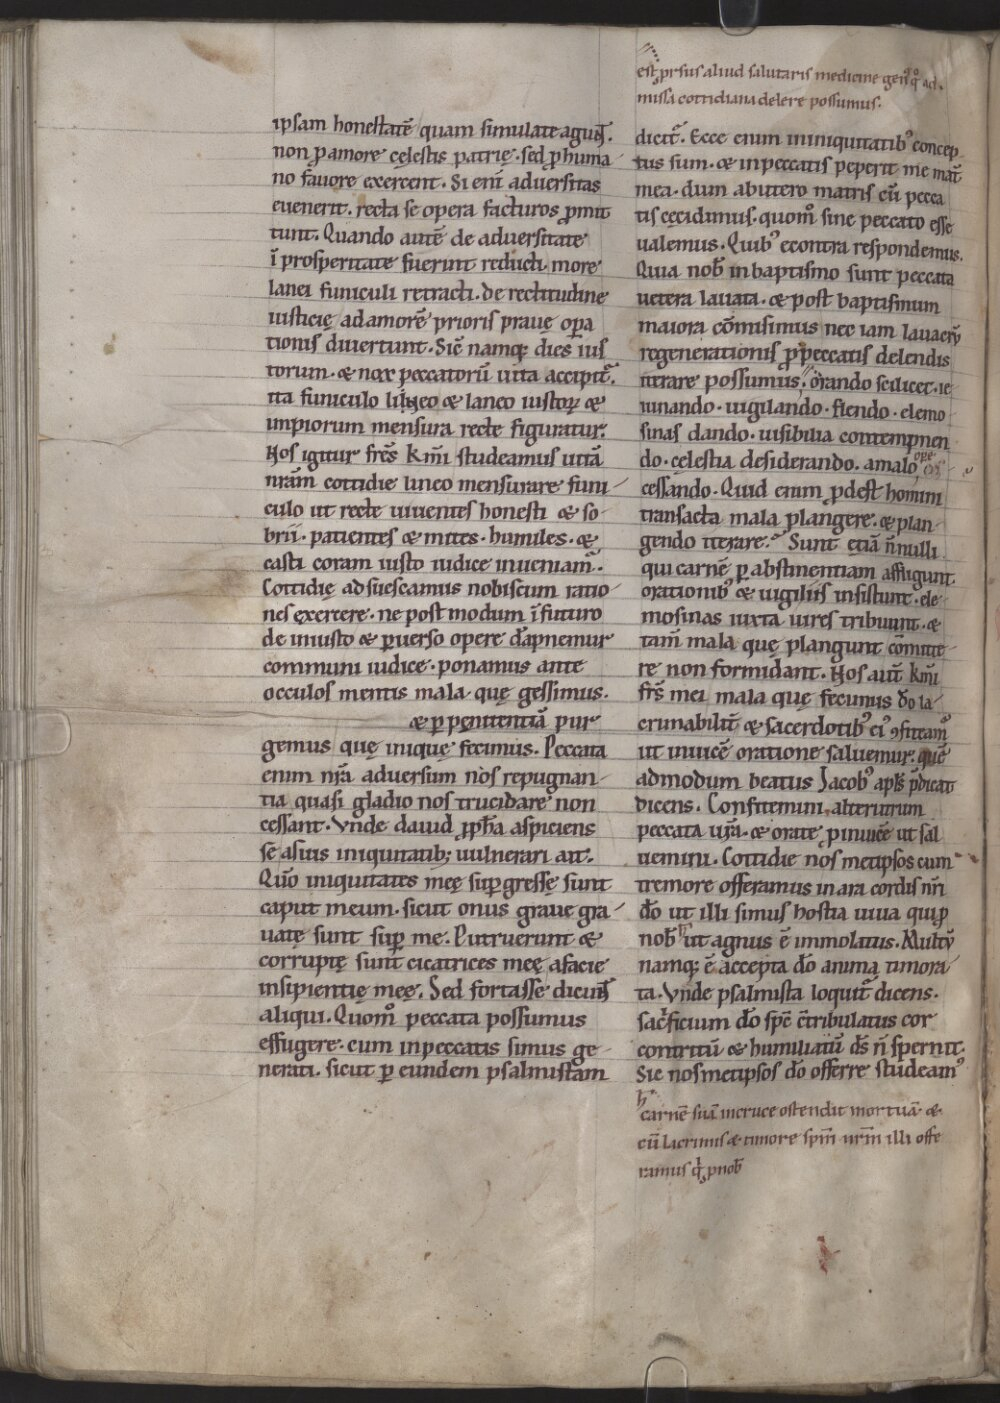 ipsam honestatē quam simulate agunt̄.
non ꝓ amore cęlestis patrię. sed ꝓ huma-
no fauore exercent. Si enī aduersitas
euenerit. recta se opera facturos ꝓmit
tunt. Quando autē de aduersitate
ī prosperitate fuerint reducti. more
lanei funiculi retracti. de rectitudine
iusticię ad amorē prioris prauę oꝑa
tionis diuertunt. Sic̄ namq; dies ius
torum. & nox peccatorū uita accipit᷑.
ita funiculo lineo & laneo iustoꝝ &
impiorum mensura recte figuratur.
Hos igitur fr̄s k̄mi studeamus uitā
nr̄am cottidie lineo mensurare funi-
culo ut recte uiuentes honesti & so-
brii. patientes & mites. humiles. &
casti coram iusto iudice inueniam᷑.
Cottidię adsuescamus nobiscum ratio-
nes exercere. ne post modum ī futuro
de iniusto & ꝑuerso opere dāpnemur
communi iudice. ponamus ante
occulos mentis mala. quę gessimus.
& ꝑ pęnitentiā pur
gemus quę inique fecimus. Peccata
enim nr̄a aduersum nos repugnan-
tia quasi gladio nos trucidare non
cessant. Vnde dauid ꝓpħa aspiciens
se a suis iniquitatib; uulnerari ait.
Qm̄o iniquitates meę suꝑgressę sunt
caput meum. sicut onus graue gra-
uatę sunt suꝑ me. Putruerunt &
corruptę sunt cicatrices meę a facie
insipientię meę. Sed fortasse dicunt̄
aliqui. Quom̊ peccata possumus
effugere. cum in peccatis simus ge-
nerati. sicut ꝑ eundem psalmistam
est ꝓrsus aliud salutaris medicine gen᷒ q̊ ad-
missa cottidiana delere possumus.
dicit᷑. Ecce enim in iniquitatib᷒ concep
tus sum. & in peccatis peperit me mat᷑
mea. dum ab utero matris cū pecca
tis cecidimus. quom̊ sine peccato esse
ualemus. Quib᷒ econtra respondemus.
Quia nob̄ in baptismo sunt peccata
uetera lauata. & post baptismum
maiora cōmisimus nec iam lauacrū
regenerationis ꝓ peccatis delendis
itrare possumus. orando scilicet. ie
iunando. uigilando. flendo. elemo-
sinas dando. uisibilia contempnen
do. celestia desiderando. a malo ope
cessando. Quid enim ꝓdest homini
transacta mala plangere. & plan-
gendo iterare. Sunt etiā n̄nulli
qui carnē ꝑ abstinentiam affligunt
orationib᷒ & uigiliis insistunt. ele-
mosinas iuxta uires tribuunt. &
tam̄ mala quę plangunt cōmitte-
re non formidant. Hos aut̄ k̄mi
fr̄s mei mala quę fecimus dō la-
crimabilit̄ & sacerdotib᷒ ei᷒ ꝯfiteam᷒
ut inuicē oratione saluemur. quē
admodum beatus Jacob᷒ apl̄s p̄dicat
dicens. Confitemini alterutrum
peccata ur̄a. & orate ꝓ inuicē ut sal
uemini. Cottidie nos metipsos cum
tremore offeramus in ara cordis nr̄i
dō ut illi simus hostia uiua qui ꝓ
nob̄ ħ ut agnus ē immolatus. Multū
namq; ē accepta dō anima timora-
ta. Vnde psalmista loquit᷑ dicens.
sacrificium dō spc̄ cōtribulatus cor
contritū & humiliatū ds̄ n̄ spernit.
Sic nosmetipsos dō offerre studeam᷒
ħ
carnē suā in cruce ostendit mortuā. &
cū lacrimis & timore spm̄ nrm̄ illi offe
ramus q̇ ꝓ nob̄